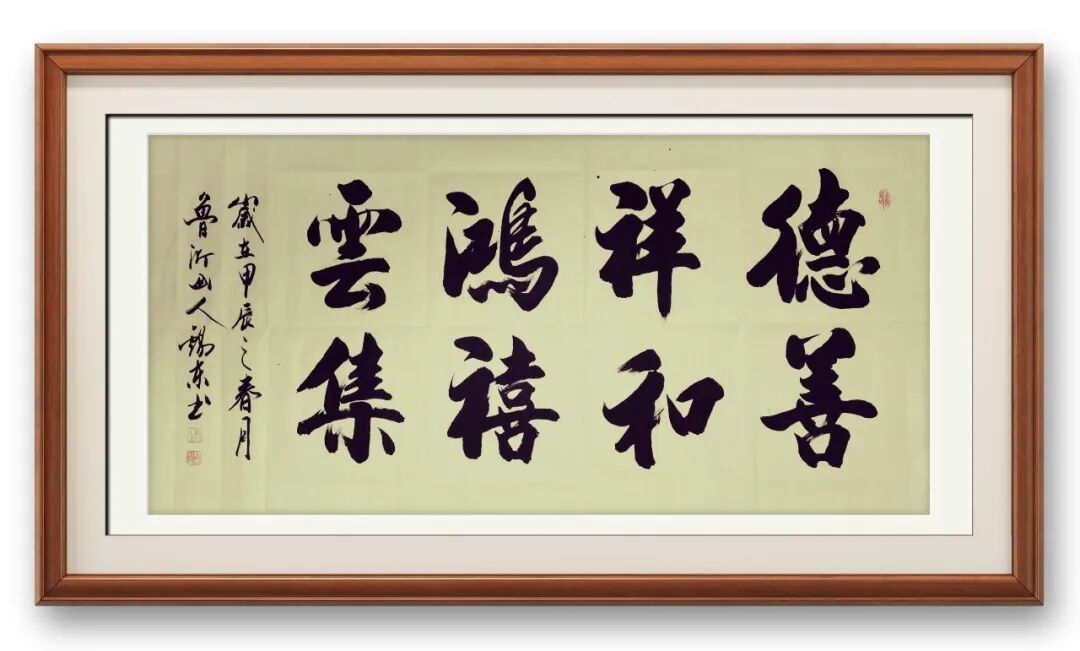 德善
祥和
鴻禧
雲集
歲在甲辰之春月
魯沂山人錫東书